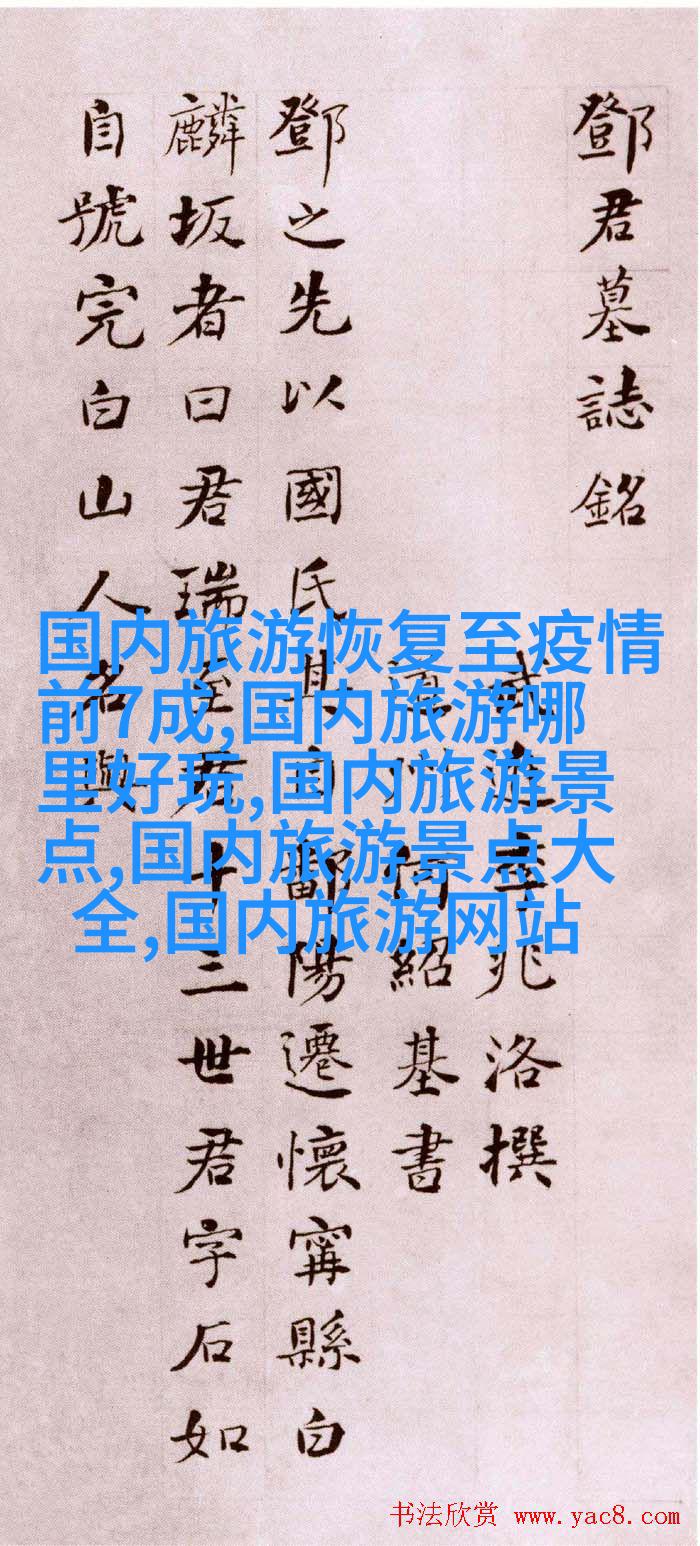 鄧君墓誌銘
武進李兆洛撰
道州何紹基書
鄧之先以國氏其自鄱陽遷懷甯縣白
麟坂者曰君瑞至君十三世君字石如
自號完白山人名與
国内旅游恢复至疫情
前7成,国内旅游哪
里好玩,国内旅游景
点,国内旅游景点大
全,国内旅游网站
书法欣赏 www.yac8.com